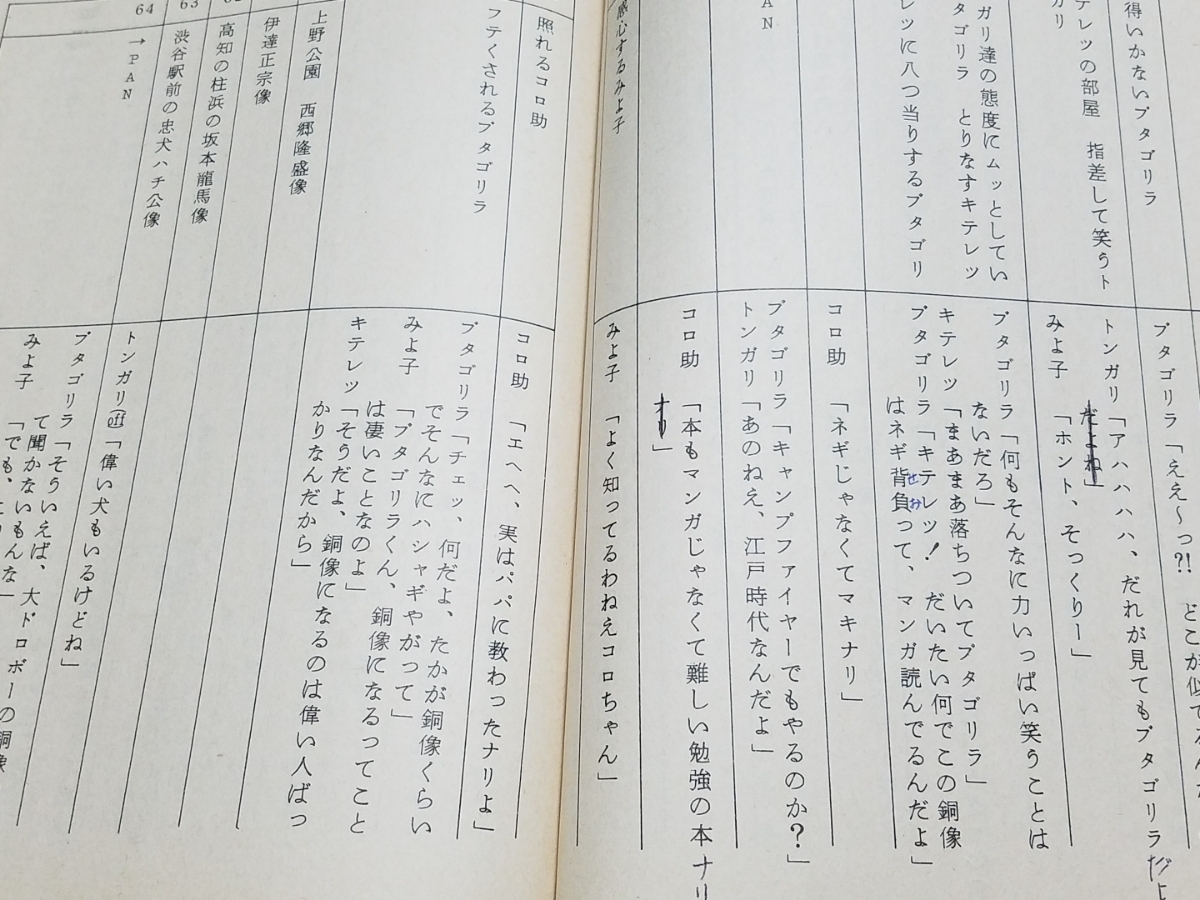 得いかないブタゴリラ
テレツの部屋　指差して笑うト
ガリ
ガリ達の態度にムッとしてい
タゴリラ　とりなすキテレツ
レツに八つ当りするブタゴリ
AN
感心するみよ子
ブタゴリラ「ええ〜っ?!
トンガリ「アハハハハ、だれが見てもブタゴリラだよ
だよね」
みよ子　「ホント、そっくりー」
ブタゴリラ「何もそんなに力いっぱい笑うことは
ないだろ」
キテレツ「まあまあ落ちついてブタゴリラ」
ブタゴリラ「キテレツ！　だいたい何でこの銅像
はネギ背負って、マンガ読んでるんだよ」
せお
コロ助　「ネギじゃなくてマキナリ」
ブタゴリラ「キャンプファイヤーでもやるのか？」
トンガリ「あのねえ、江戸時代なんだよ」
コロ助　「本もマンガじゃなくて難しい勉強の本ナリ
ナリ」
みよ子　「よく知ってるわねえコロちゃん」
照れるコロ助
フテくされるブタゴリラ
上野公園　西郷隆盛像
伊達正宗像
高知の桂浜の坂本龍馬像
63
渋谷駅前の忠犬ハチ公像
64
→PAN
コロ助　「エヘヘ、実はパパに教わったナリよ」
ブタゴリラ「チェッ、何だよ、たかが銅像くらい
でそんなにハシャギやがって」
みよ子　「ブタゴリラくん、銅像になるってこと
は凄いことなのよ」
キテレツ「そうだよ、銅像になるのは偉い人ばっ
かりなんだから」
トンガリ(off)「偉い犬もいるけどね」
ブタゴリラ「そういえば、大ドロボーの銅像
て聞かないもんな」
みよ子　「でも、